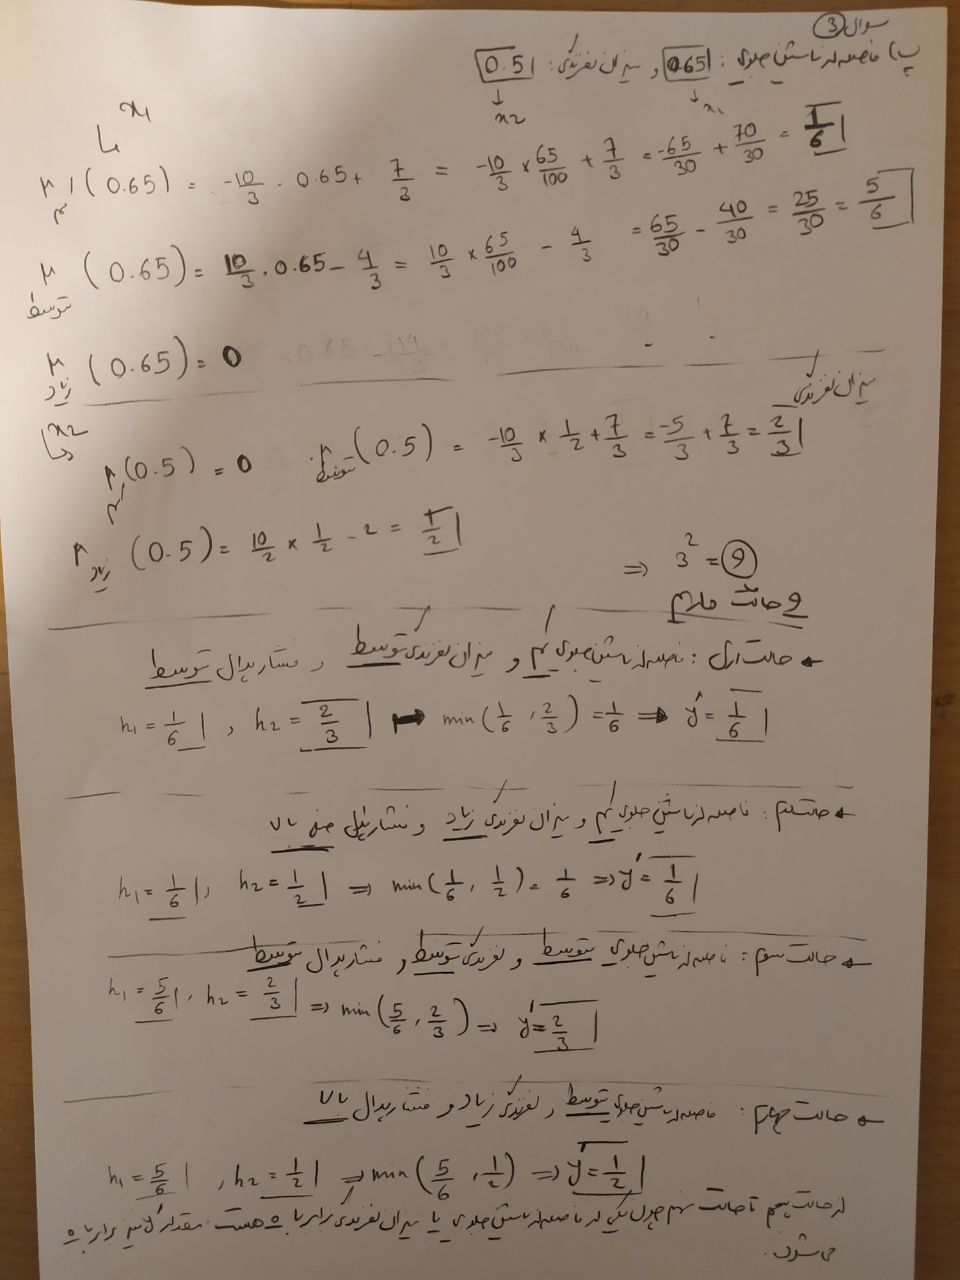 سوال 3
پ) فاصله از ماشین جلوی: 0.65 و میزان لغزندگی: 0.5
↓ x2 ↓ x1
↳ x1
μ کم (0.65) = -10/3 . 0.65 + 7/3 = -10/3 × 65/100 + 7/3 = -65/30 + 70/30 = 1/6
μ متوسط (0.65) = 10/3 . 0.65 - 4/3 = 10/3 × 65/100 - 4/3 = 65/30 - 40/30 = 25/30 = 5/6
μ زیاد (0.65) = 0
میزان لغزندگی
↳ x2
μ کم (0.5) = 0 μ متوسط (0.5) = -10/3 × 1/2 + 7/3 = -5/3 + 7/3 = 2/3
μ زیاد (0.5) = 10/2 × 1/2 - 2 = 1/2
⇒ 3^2 = 9
9 حالت داریم
← حالت اول: فاصله از ماشین جلوی کم و میزان لغزندگی متوسط و فشار پدال متوسط
h1 = 1/6 , h2 = 2/3 → min(1/6 , 2/3) = 1/6 ⇒ y' = 1/6
← حالت دوم: فاصله از ماشین جلوی کم و میزان لغزندگی زیاد و فشار پدال بالا
h1 = 1/6 , h2 = 1/2 ⇒ min(1/6 , 1/2) = 1/6 ⇒ y' = 1/6
← حالت سوم: فاصله از ماشین جلوی متوسط و لغزندگی متوسط و فشار پدال متوسط
h1 = 5/6 , h2 = 2/3 ⇒ min(5/6 , 2/3) ⇒ y' = 2/3
← حالت چهارم: فاصله از ماشین جلوی متوسط و لغزندگی زیاد و فشار پدال بالا
h1 = 5/6 , h2 = 1/2 ⇒ min(5/6 , 1/2) ⇒ y' = 1/2
از حالت پنجم تا حالت نهم چون یکی از فاصله از ماشین جلوی یا میزان لغزندگی برابر با 0 هست مقدار y' نیز برابر با 0
می شود.